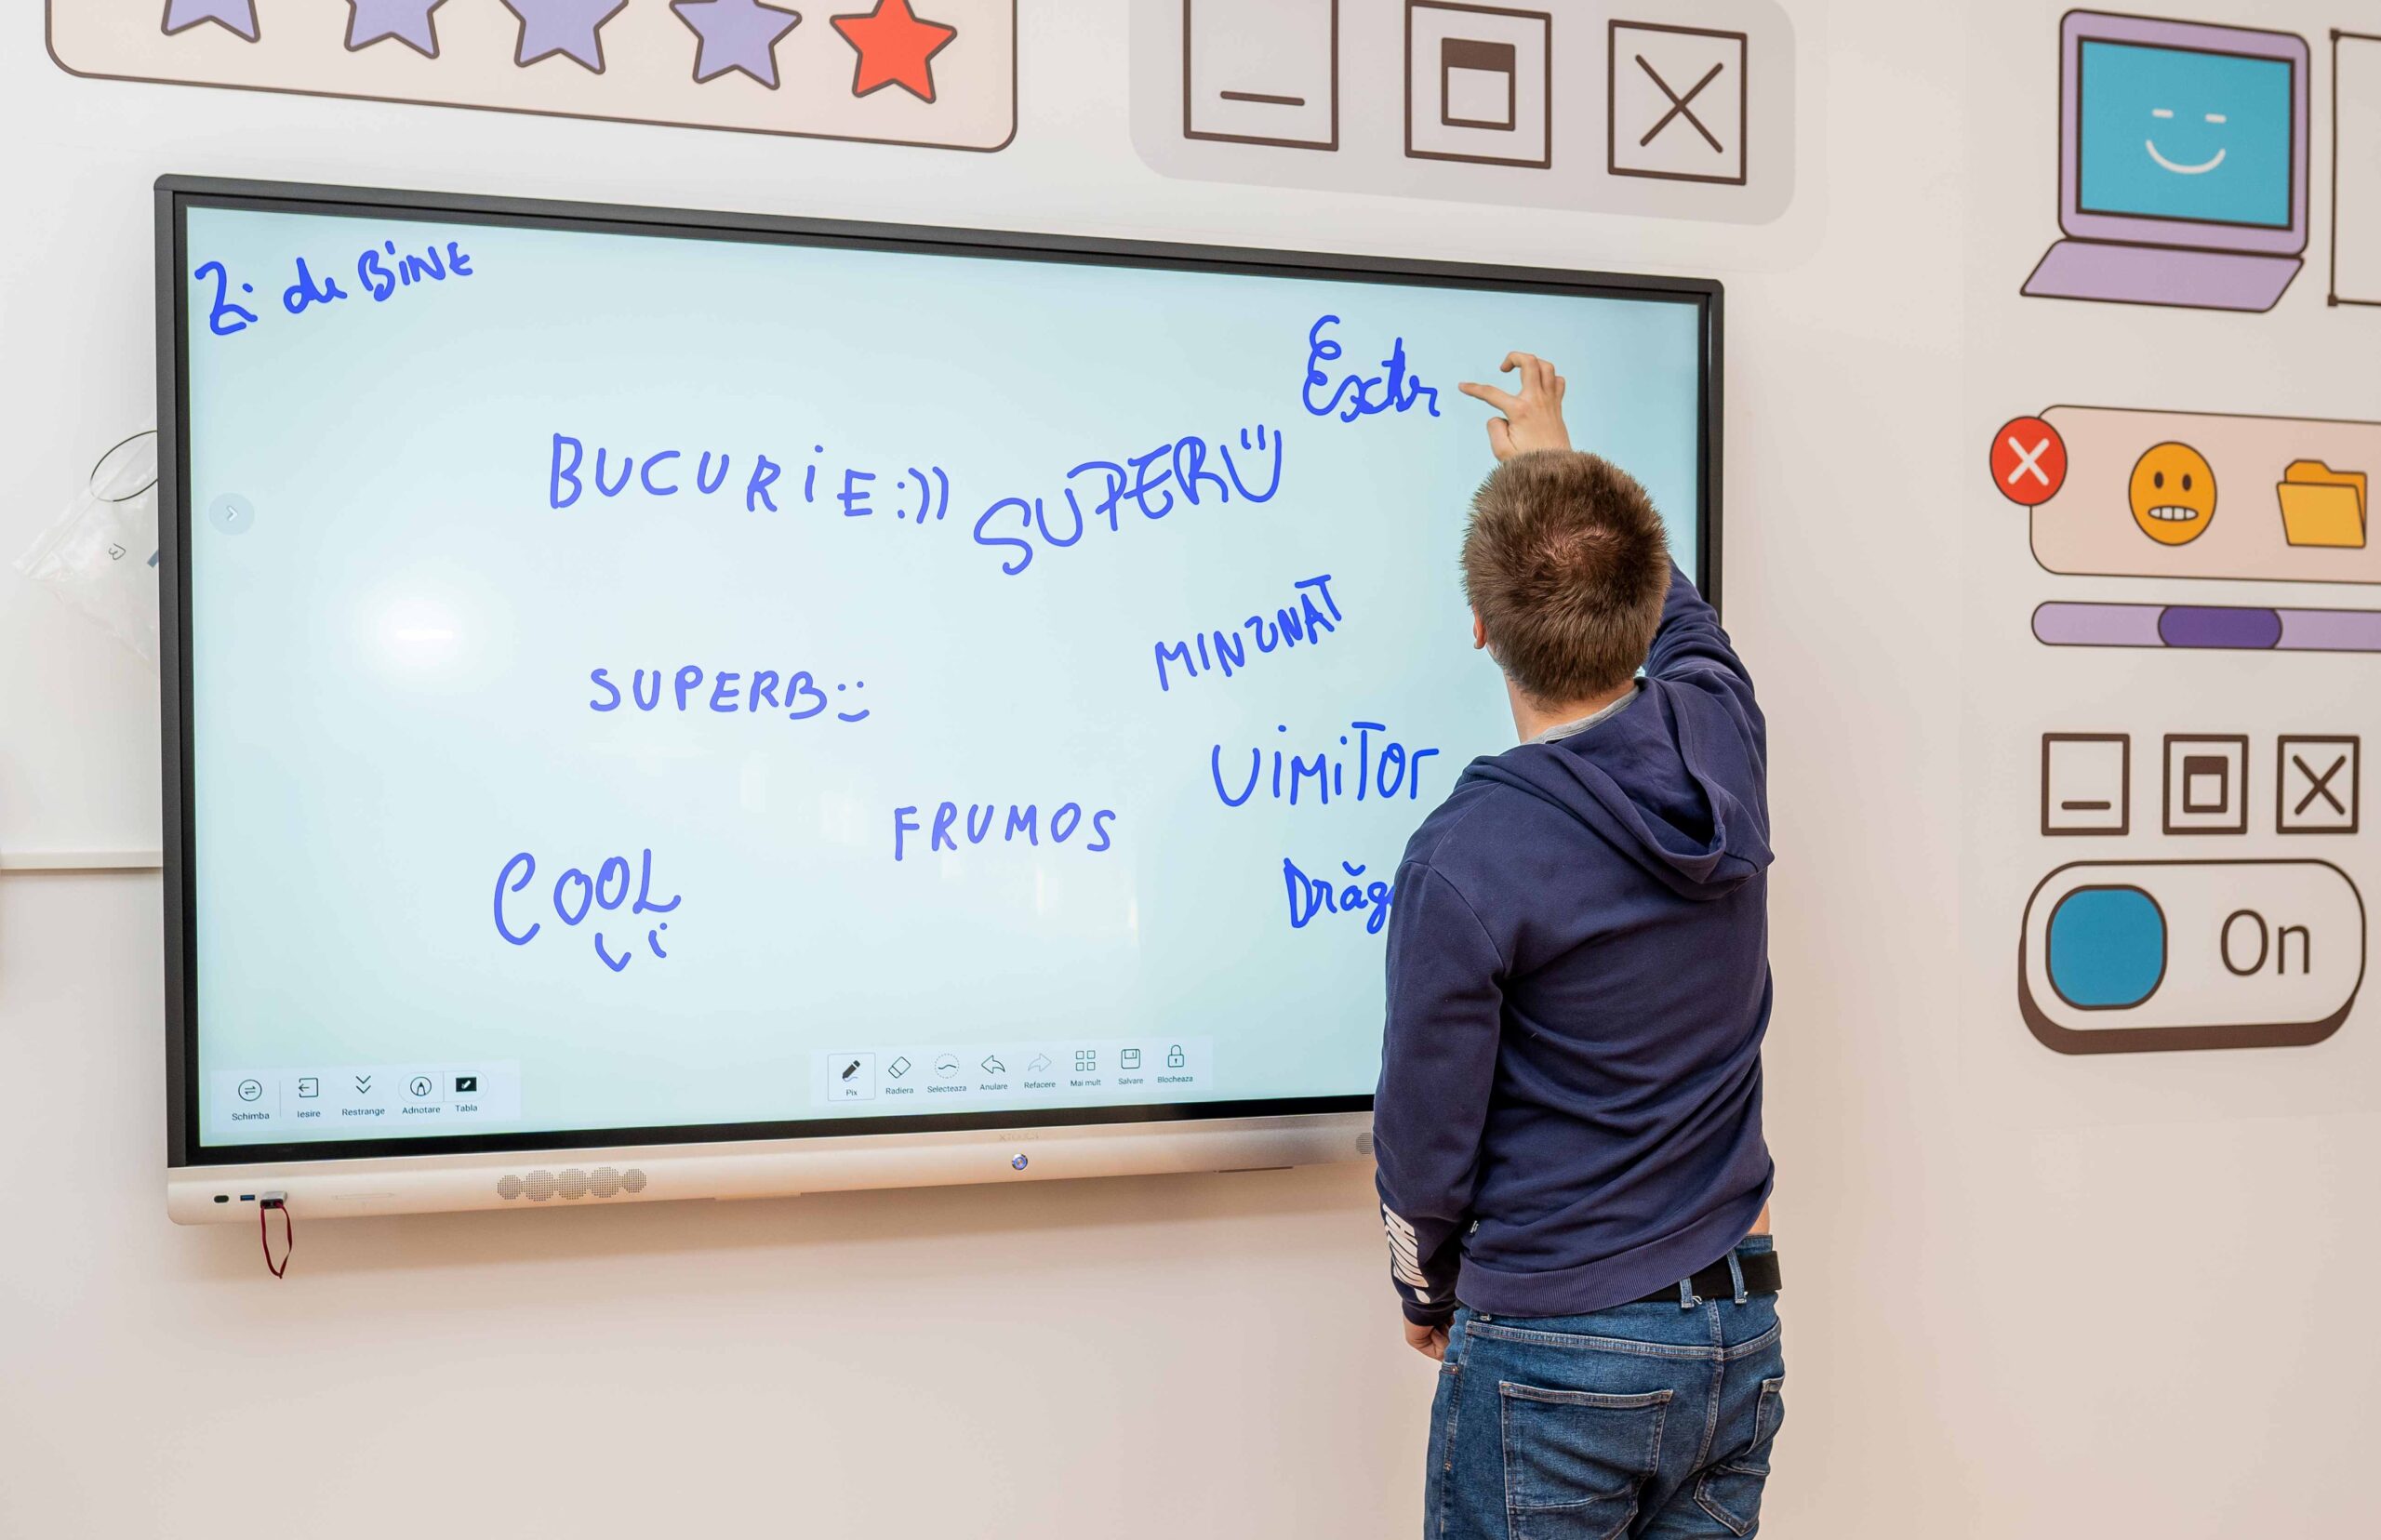 Zi de BiNE
Extr
BUCURiE:))
SUPER
MINUNAT
SUPERB
UiMiTOr
FRUMOS
Drăg
COOL
On
Pix
Radiera
Selecteaza
Anulare
Refacere
Mai mult
Salvare
Blocheaza
Schimba
Iesire
Restrange
Adnotare
Tabla